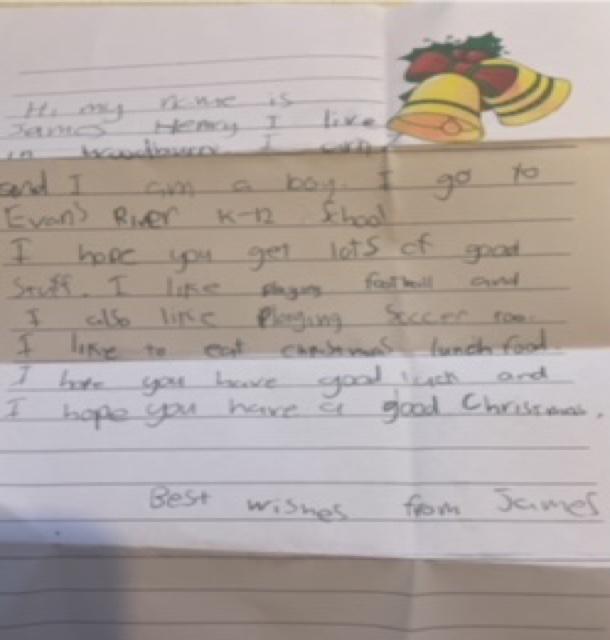 Hi my name is
James Henry I like
in Woodburn I
and I am a boy. I go to
Evans River K-12 School
I hope you get lots of good
stuff. I like playing football and
I also like Playing Soccer too.
I like to eat christmas lunch food.
I hope you have good luck and
I hope you have a good Christmas.
Best wishes from James